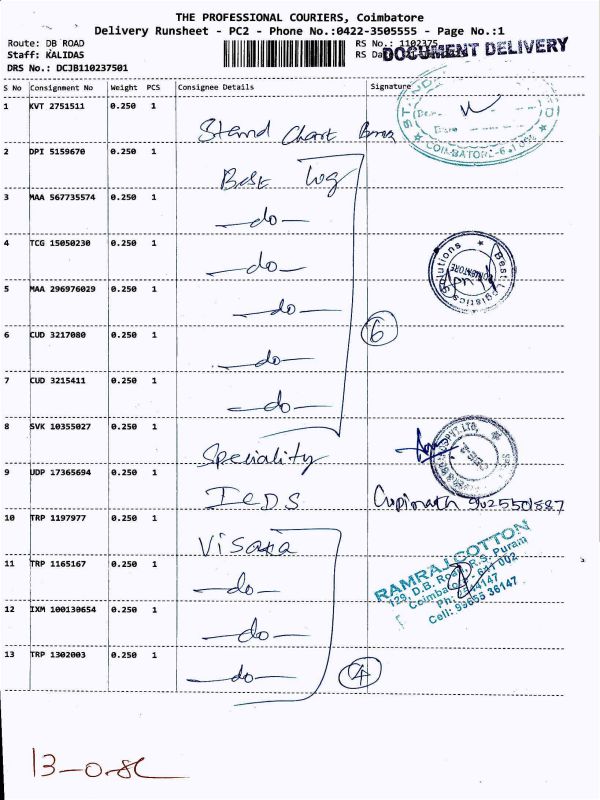 THE PROFESSIONAL COURIERS, Coimbatore
Delivery Runsheet - PC2 - Phone No.:0422-3505555 - Page No.:1
Route: DB ROAD RS No.: 1102375
Staff: KALIDAS RS Da
DOCUMENT DELIVERY
DRS No.: DCJB110237501
S No Consignment No Weight PCS Consignee Details Signature
1 KVT 2751511 0.250 1
Stand Chart
COIMBATORE
2 DPI 5159670 0.250 1
Best Log
3 MAA 567735574 0.250 1
—do—
4 TCG 15050230 0.250 1
—do—
Best Logistics Solutions
COIMBATORE
5 MAA 296976029 0.250 1
—do—
6 CUD 3217080 0.250 1
6
—do—
7 CUD 3215411 0.250 1
—do—
8 SVK 10355027 0.250 1
Speciality
PVT. LTD.
9 UDP 17365694 0.250 1
ICDS
Gopinath 9025501887
10 TRP 1197977 0.250 1
Visaka
RAMRAJ COTTON
129, D.B. Road, R.S. Puram
Coimbatore - 641 002
Ph: 4147
Cell: 93655 36147
11 TRP 1165167 0.250 1
—do—
12 IXM 100130654 0.250 1
—do—
13 TRP 1302003 0.250 1
—do—
4